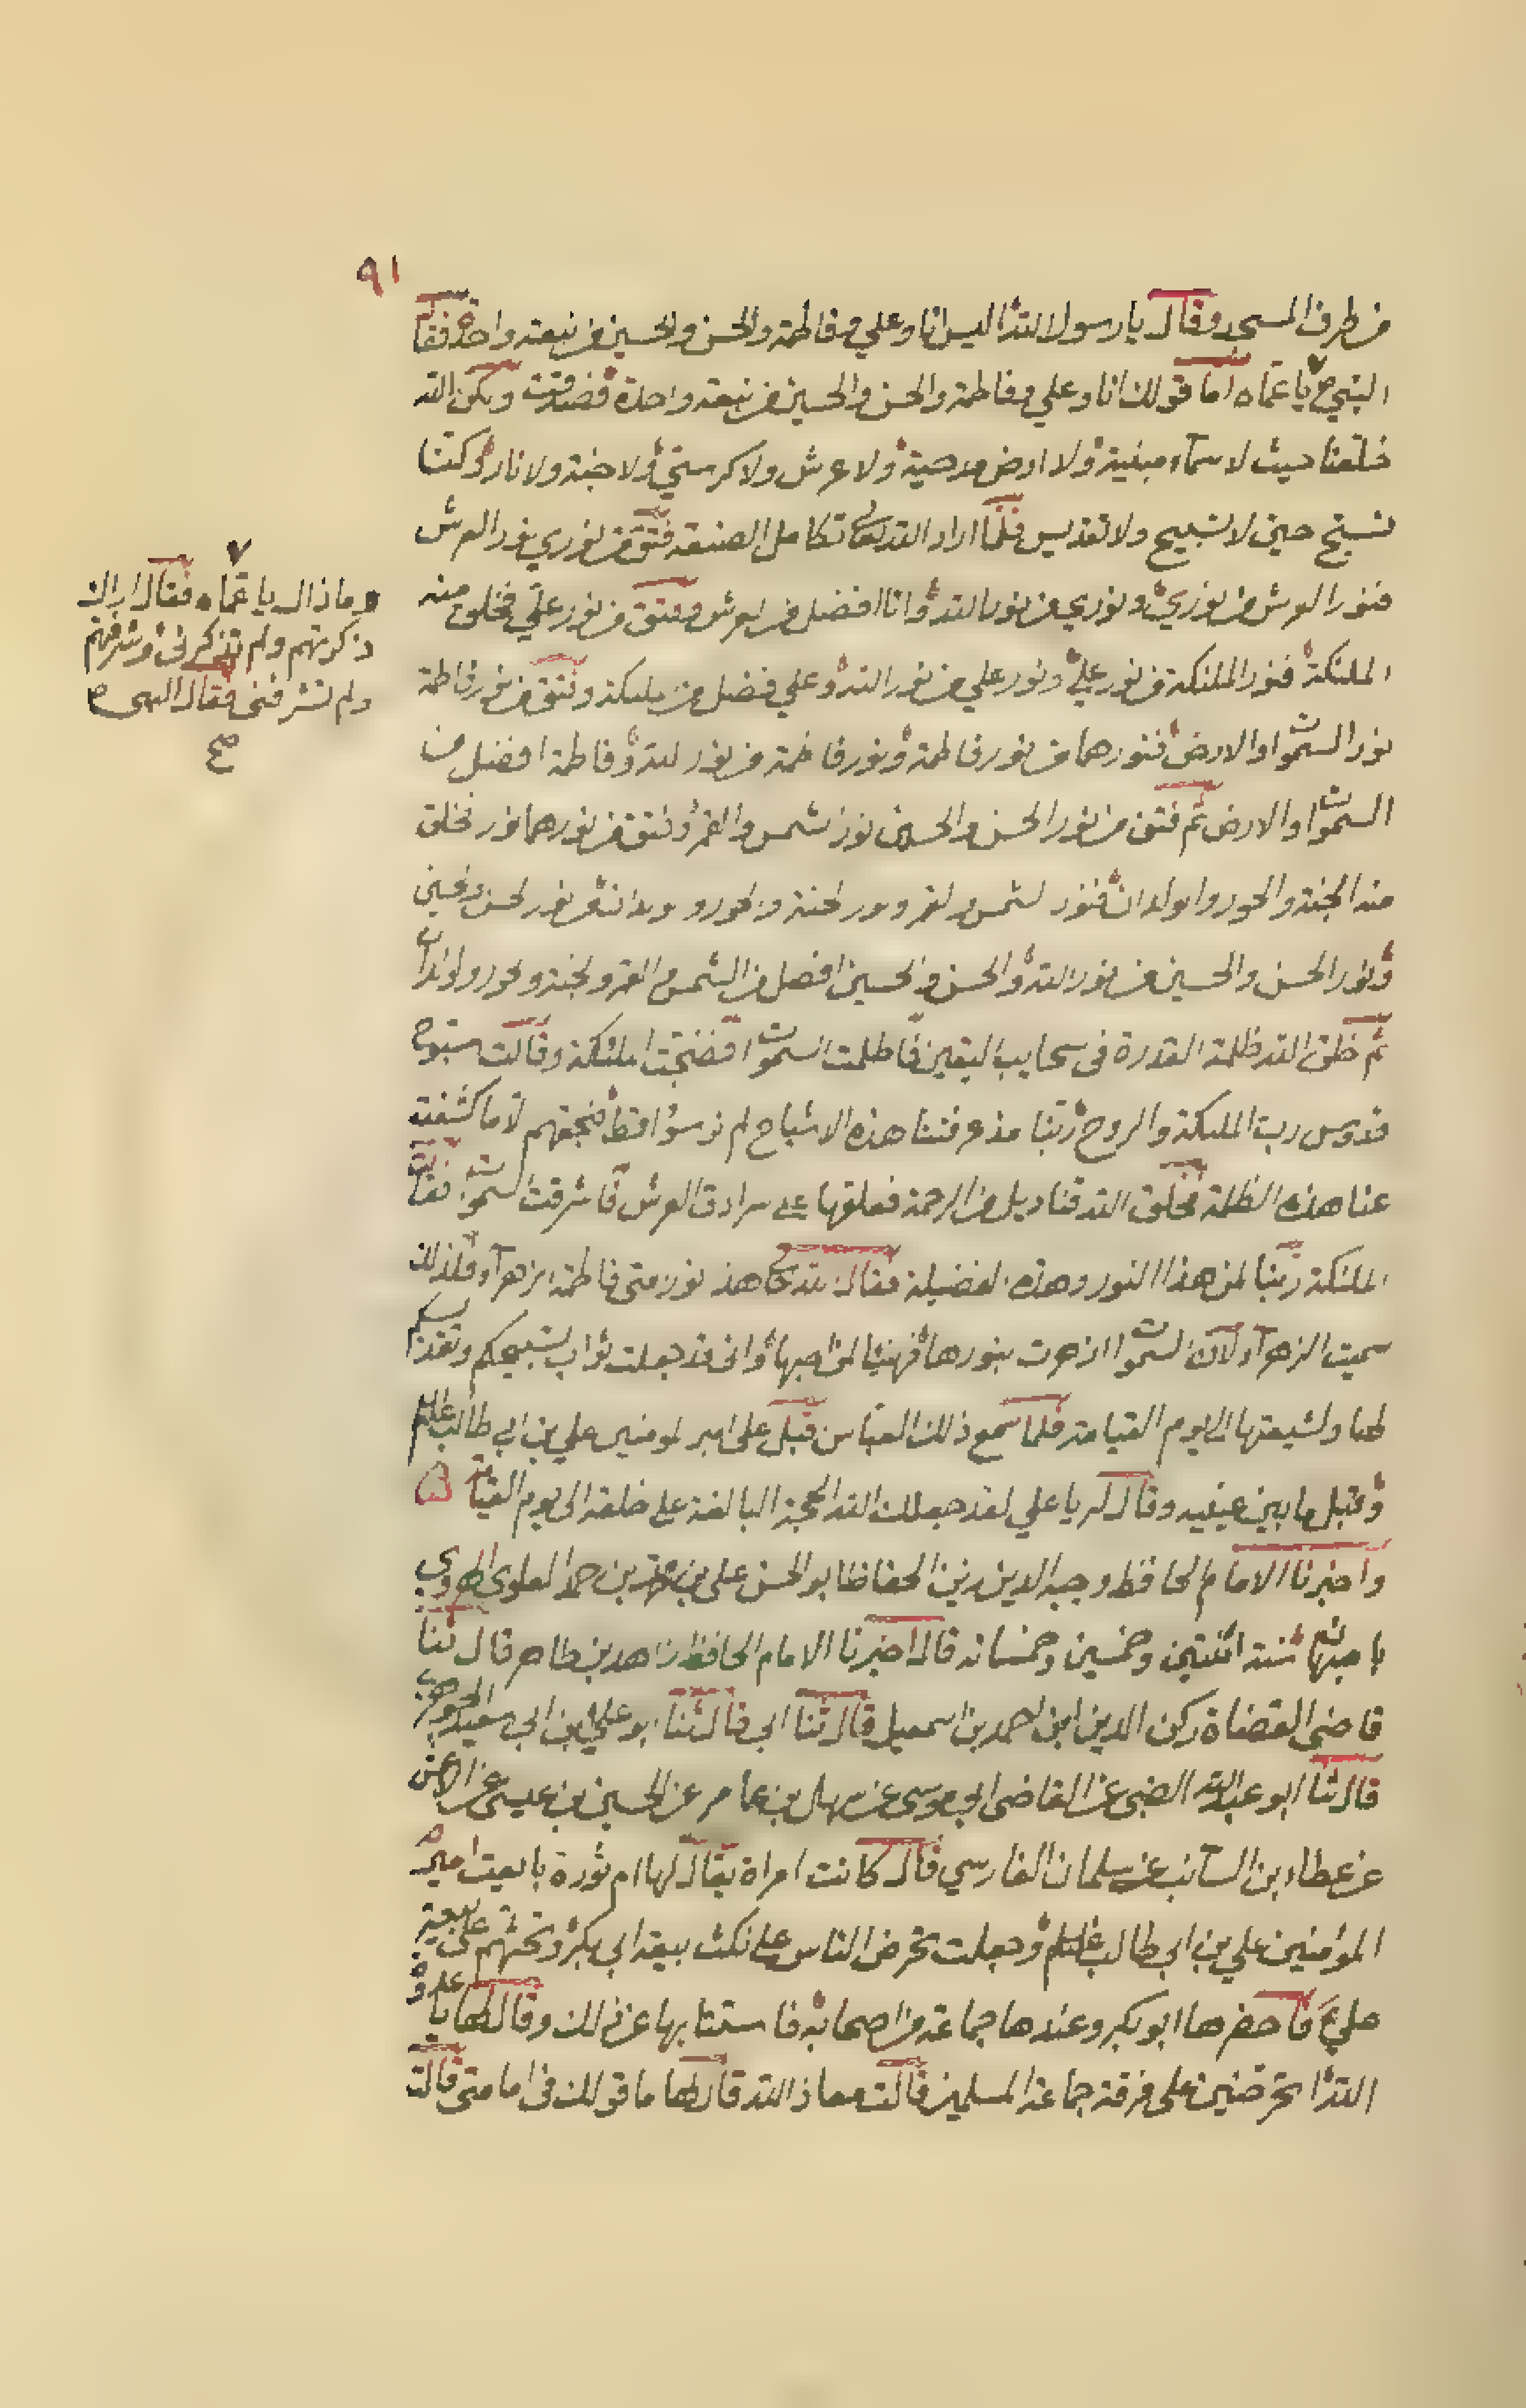 ٩١
من طرف المسجد وقال يا رسول الله اليس انا وعلي وفاطمة والحسن والحسين من نبعة واحدة فقال
النبي ص يا عماه اما قولك انا وعلي وفاطمة والحسن والحسين من نبعة واحدة فصدقت ولكن الله
خلقنا حيث لا سماء مبنية ولا ارض مدحية ولا عرش ولا كرسي ولا جنة ولا نار وكنا
نسبح حين لا تسبيح ولا تقديس فلما اراد الله تعالى تكامل الصنعة فتق من نوري نور العرش
فنور العرش من نوري ونوري من نور الله وانا افضل من العرش وفتق من نور علي فخلق منه
الملئكة فنور الملئكة من نور علي ونور علي من نور الله وعلي افضل من الملئكة وفتق من نور فاطمة
نور السموات والارض فنورهما من نور فاطمة ونور فاطمة من نور الله وفاطمة افضل من
السموات والارض ثم فتق من نور الحسن والحسين نور الشمس والقمر وفتق من نورهما نور فخلق
منه الجنة والحور والولدان فنور الشمس والقمر ونور الجنة والحور والولدان من نور الحسن والحسين
ونور الحسن والحسين من نور الله والحسن والحسين افضل من الشمس والقمر والجنة والحور والولدان
ثم خلق الله ظلمة القدرة في سحايب اليقين فاظلمت السموات فضجت الملئكة وقالت سبوح
قدوس رب الملئكة والروح ربنا مذ عرفتنا هذه الاشباح لم نر سوءا قط فبحقهم لا ما كشفت
عنا هذه الظلمة فخلق الله قناديل من الرحمة فعلقها على سرادق العرش فاشرقت السموات فقالت
الملئكة ربنا لمن هذا النور وهذه الفضيلة فقال الله تعالى هذا نور امتي فاطمة الزهراء فلذلك
سميت الزهراء لان السموات ازهرت بنورها فهنيئا لمن احبها واني قد جعلت ثواب تسبيحكم وتقديسكم
لها ولشيعتها الى يوم القيامة فلما سمع ذلك العباس قبل على امير المومنين علي بن ابي طالب عليه السلم
وقبل ما بين عينيه وقال له يا علي لقد جعلك الله الحجة البالغة على خلقه الى يوم القيامة
واخبرنا الامام الحافظ وجيه الدين زين الحفاظ ابو الحسن علي بن حمزة العلوي الهروي
باصبهان سنة اثنتين وخمسين وخمسمائة قال اخبرنا الامام الحافظ زاهد بن طاهر قال ثنا
قاضي القضاة ركن الدين ابن احمد بن اسمعيل قال ثنا ابي قال ثنا ابو علي بن ابي سعيد الجوهري
قال ثنا ابو عبد الله الضبي عن القاضي ابي موسى عن سهل بن عامر عن الحسين بن عيسى عن الاعمش
عن عطاء بن السائب عن سلمان الفارسي قال كانت امراة يقال لها ام نورة بايعت امير
المؤمنين علي بن ابي طالب عليه السلم وجعلت تحرض الناس على نكث بيعة ابي بكر وتحثهم على بيعة
علي ع فاحضرها ابو بكر وعندها جماعة من اصحابه فاستتابها عن ذلك وقال لها يا عدوة
الله اتحرضين على فرقة جماعة المسلمين قالت معاذ الله قال لها ما قولك في امامتي قالت
وما ذاك يا عماه فقال اراك
ذكرتهم ولم تذكرني وشرفتهم
ولم تشرفني فقال النبي ص
صح